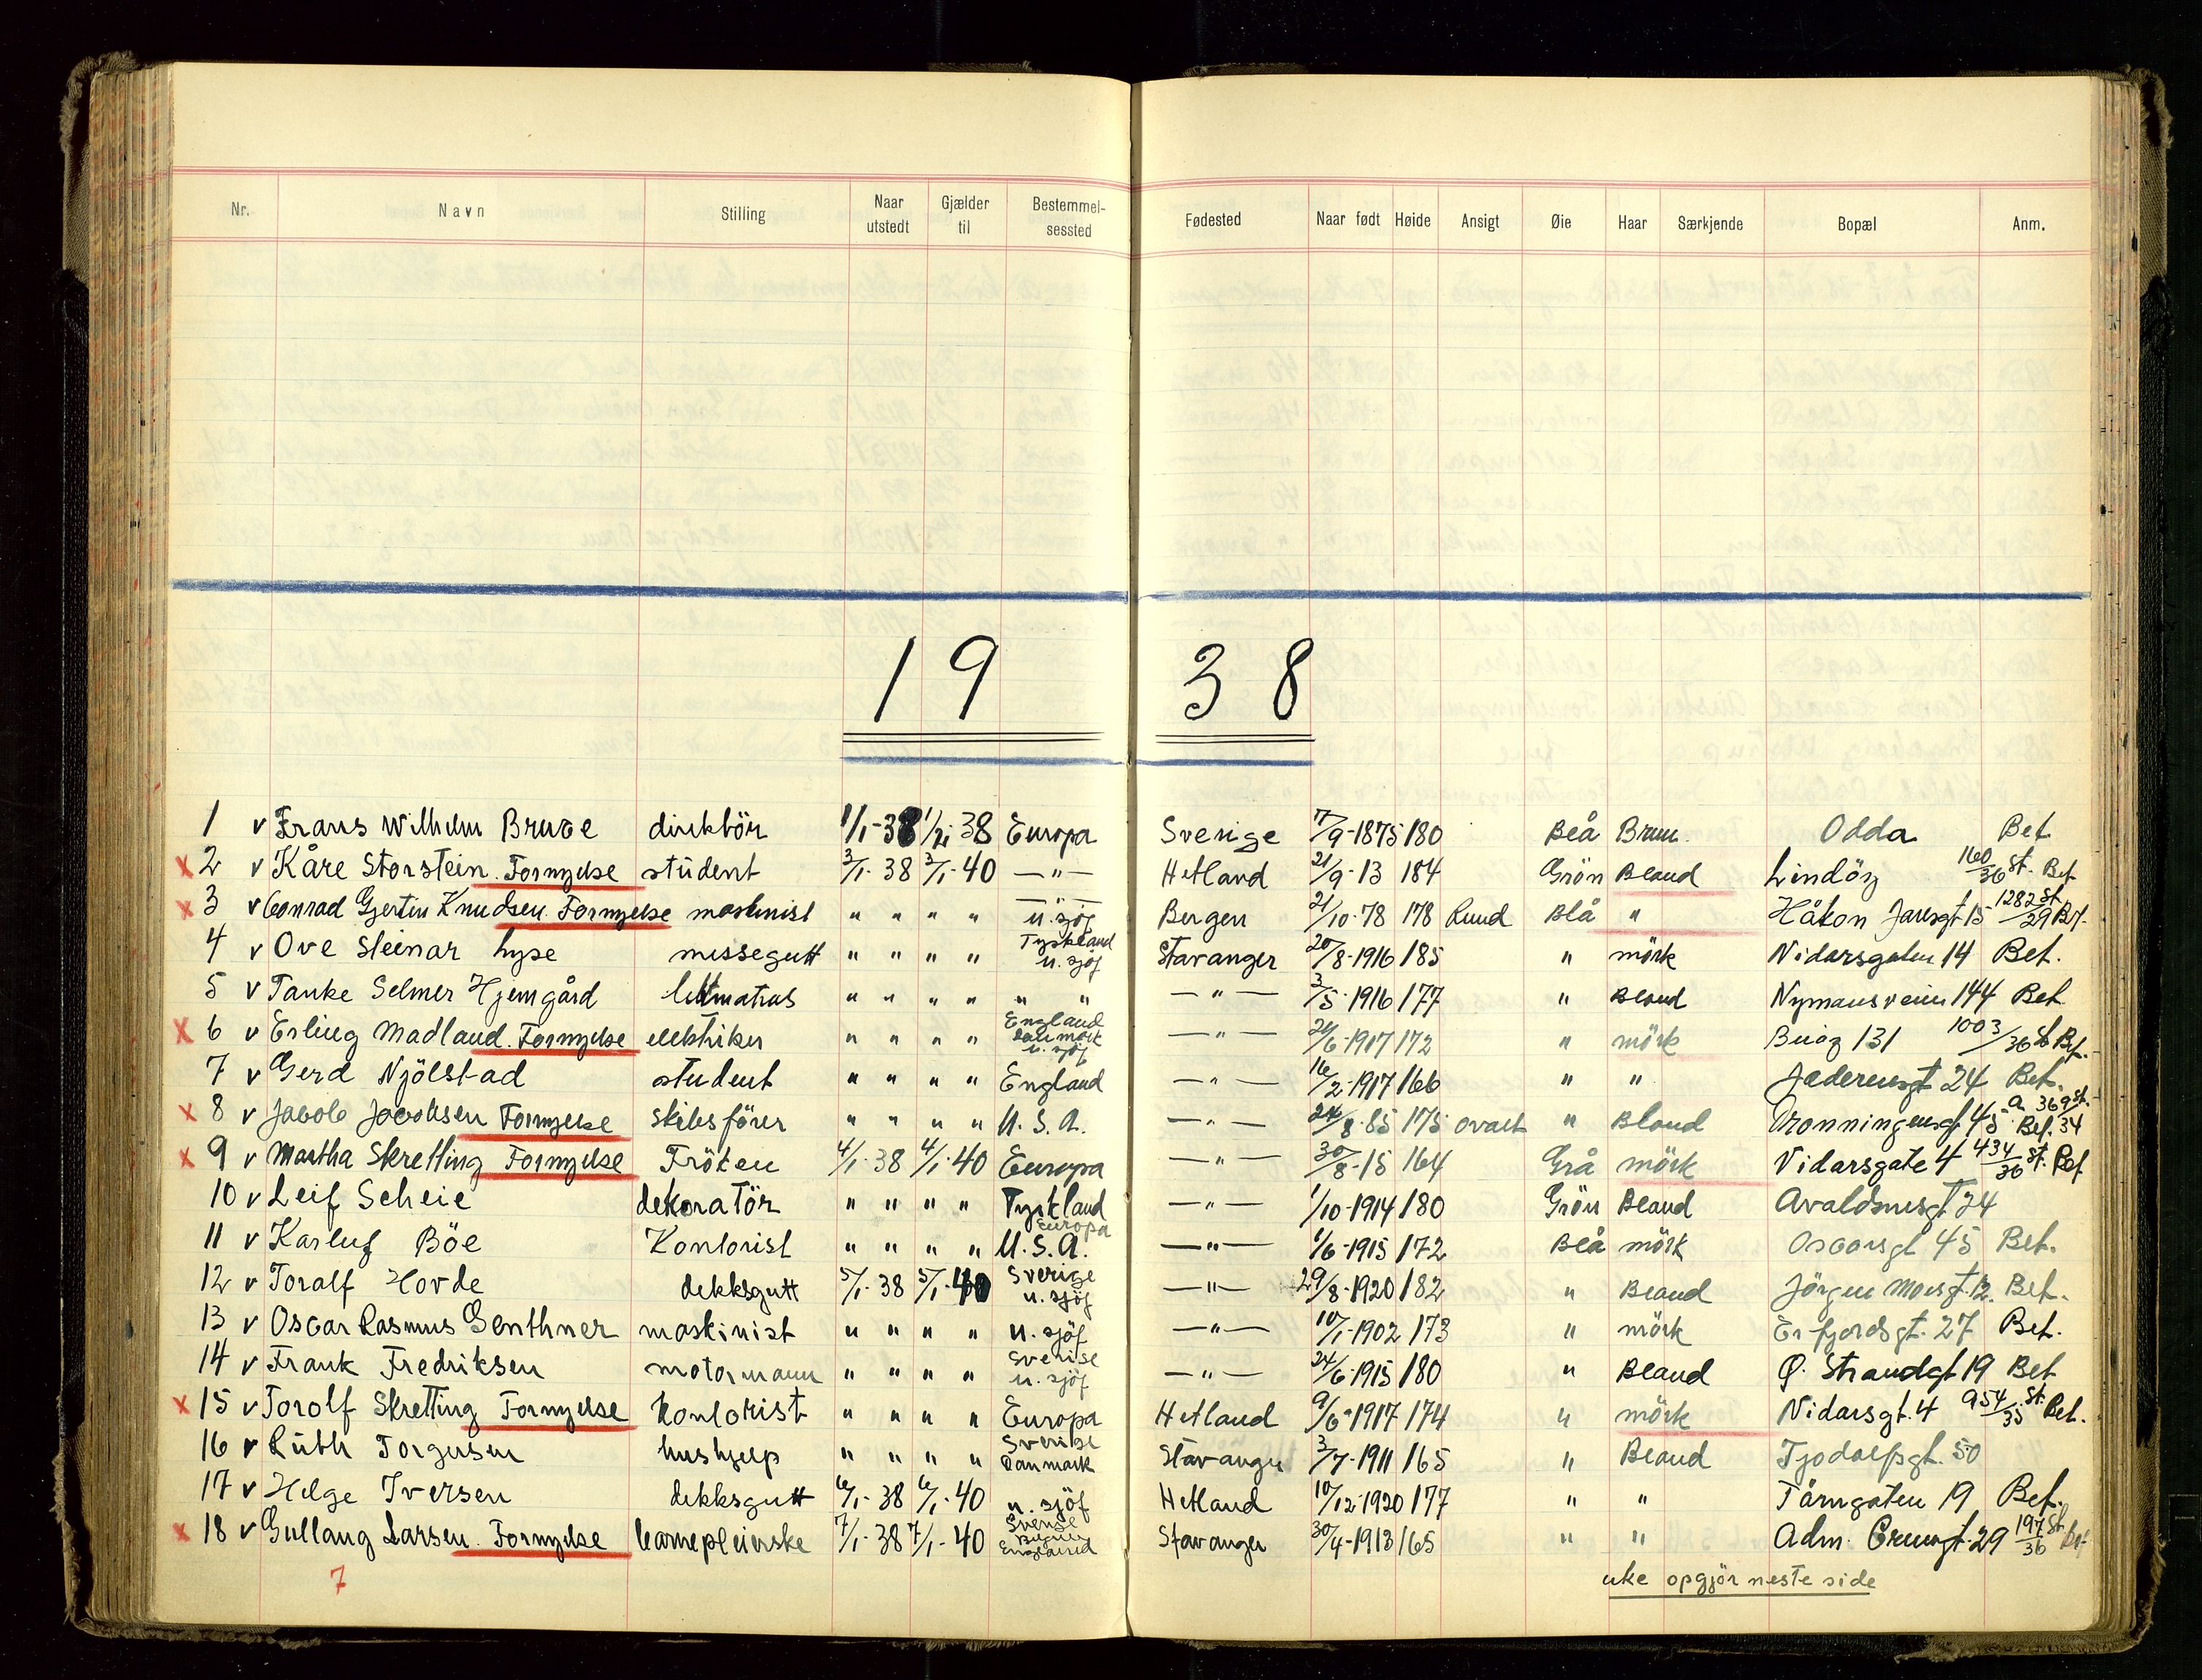 Nr. Navn Stilling Naar utstedt Gjælder til Bestemmelsessted Fødested Naar født Høide Ansigt Øie Haar Særkjende Bopæl Anm.
19 38
1 v Frans Wilhelm Bruce direktör 1/1-38 1/2-38 Europa Sverige 7/9-1875 180 Blå Brun. Odda Bet
x 2 v Kåre Storstein. Fornyelse student 3/1-38 3/1-40 —"— Hetland 21/9-13 184 Grön Blond Lindöy 160/36 St. Bet
x 3 v Conrad Gjertin Knudsen. Fornyelse maskinist " " " " —"— u. sjöf Bergen 21/10-78 178 Rund Blå " Håkon Jarlsgt 15 1282 St/29 Bet.
4 v Ove Steinar Lyse messegutt " " " " Tyskland u. sjöf Stavanger 20/8-1916 185 " mörk Nidarsgaten 14 Bet.
5 v Tanke Selmer Hjemgård lettmatros " " " " " " —"— 3/5-1916 177 " Blond Nymansveien 144 Bet
x 6 v Erling Madland. Fornyelse elektriker " " " " England Danmark u. sjöf —"— 24/6-1917 172 " mörk Buöy 131 1003/36 St Bet.
7 v Gerd Njölstad student " " " " England —"— 16/2-1917 166 " " Jaderensgt 24 Bet.
x 8 v Jacob Jacobsen Fornyelse skibsförer " " " " U.S.A. —"— 24/8-85 175 ovalt " Blond Dronningensgt 45 a 369 St. Bet. 34
x 9 v Martha Skretting Fornyelse Fröken 4/1-38 4/1-40 Europa —"— 30/8-15 164 Grå mörk Vidarsgate 4 434/36 St. Bet
10 v Leif Scheie dekoratör " " " " Tyskland —"— 1/10-1914 180 Grön Blond Avaldsnesgt 24
11 v Karluf Böe Kontorist " " " " Europa U.S.A. —"— 1/6-1915 172 Blå mörk Oscarsgt 45 Bet.
12 v Toralf Hovde dekksgutt 5/1-38 5/1-40 Sverige u. sjöf —"— 29/8-1920 182 " Blond Jörgen Moesgt. 12. Bet.
13 v Oscar Rasmus Genthner maskinist " " " " u. sjöf —"— 10/1-1902 173 " mörk Erfjordsgt. 27 Bet.
14 v Frank Fredriksen motormann " " " " Sverige u. sjöf —"— 24/6-1915 180 " Blond Ø. Strandgt 19 Bet
x 15 v Torolf Skretting Fornyelse kontorist " " " " Europa Hetland 9/6-1917 174 " mörk Nidarsgt. 4 954/35 St. Bet.
16 v Ruth Torgersen hushjelp " " " " Sverige Danmark Stavanger 3/7-1911 165 " Blond Tjodolfsgt. 50
17 v Helge Iversen dekksgutt 6/1-38 6/1-40 u. sjöf Hetland 10/12-1920 177 " " Tårngaten 19 Bet.
x 18 v Gullaug Larsen. Fornyelse barnepleierske 7/1-38 7/1-40 Sverige England Stavanger 30/4-1913 165 " " Adm. Cruysgt. 29 197/36 St. Bet
7 uke opgjör neste side